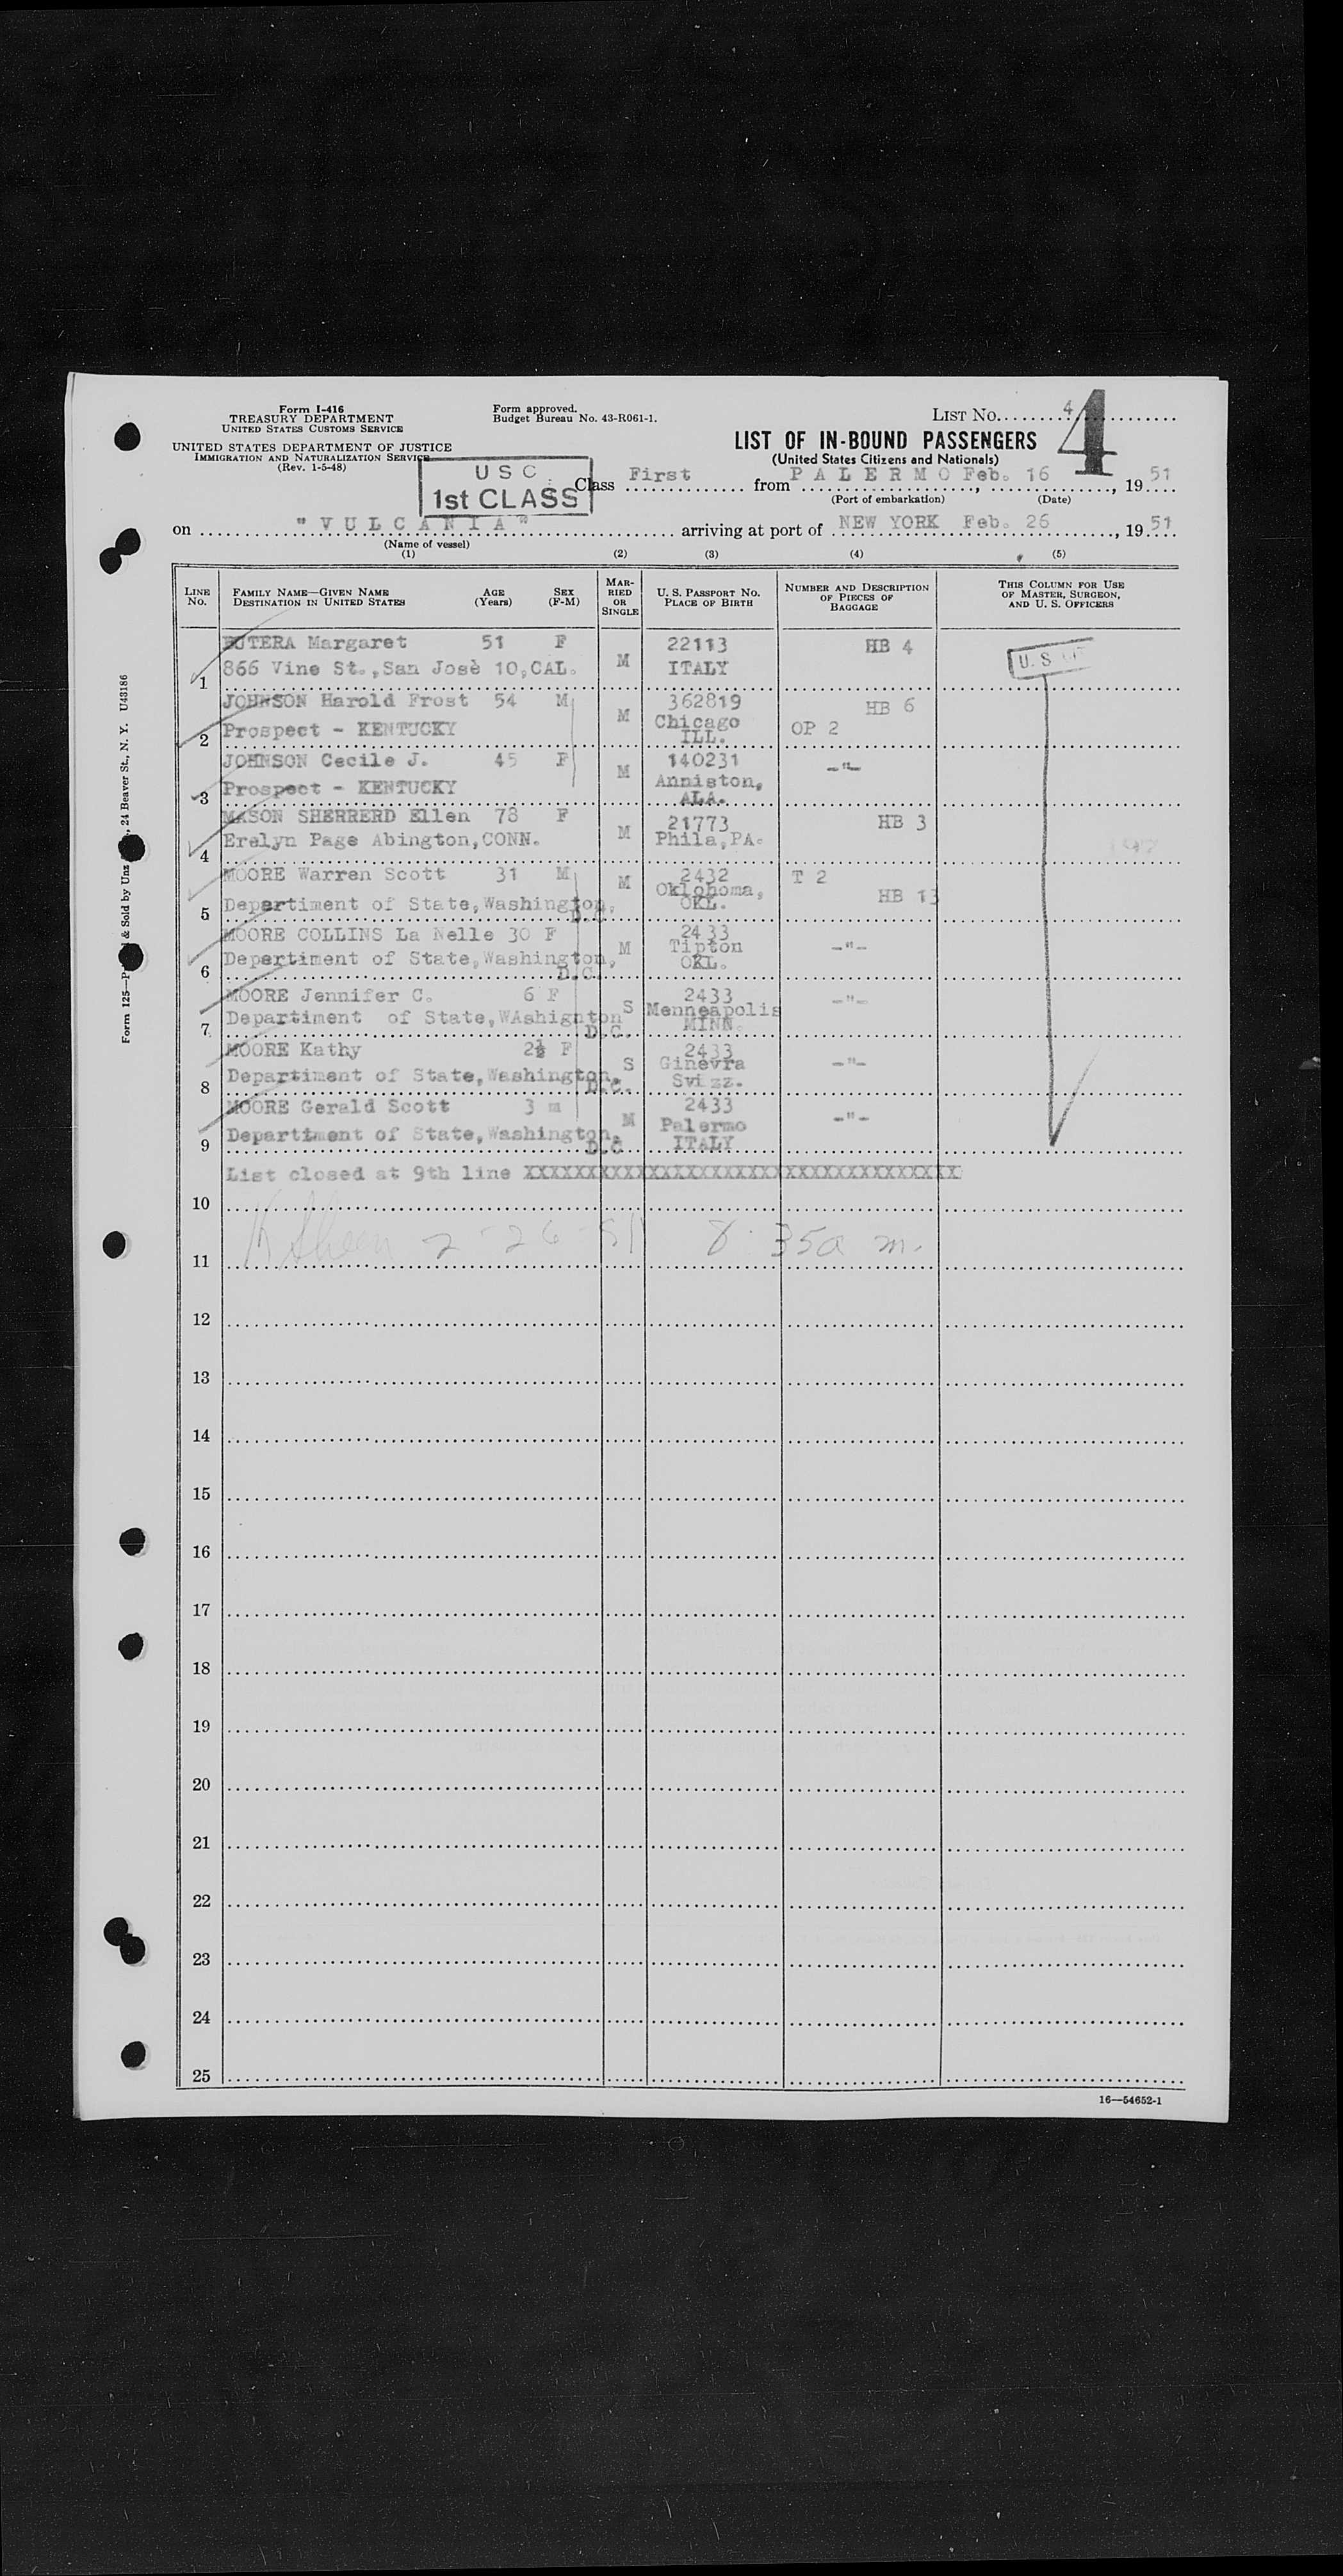 Form I-416
TREASURY DEPARTMENT
UNITED STATES CUSTOMS SERVICE
UNITED STATES DEPARTMENT OF JUSTICE
IMMIGRATION AND NATURALIZATION SERVICE
(Rev. 1-5-48)
Form approved.
Budget Bureau No. 43-R061-1.
LIST No. 4
4
LIST OF IN-BOUND PASSENGERS
(United States Citizens and Nationals)
U S C
1st CLASS
Class First from PALERMO Feb. 16, 1951
(Port of embarkation) (Date)
on "VULCANIA" arriving at port of NEW YORK Feb. 26, 1951
(Name of vessel)
(1) (2) (3) (4) (5)
LINE No. FAMILY NAME—GIVEN NAME DESTINATION IN UNITED STATES AGE (Years) SEX (F-M) MARRIED OR SINGLE U. S. PASSPORT No. PLACE OF BIRTH NUMBER AND DESCRIPTION OF PIECES OF BAGGAGE THIS COLUMN FOR USE OF MASTER, SURGEON, AND U. S. OFFICERS
BUTERA Margaret 51 F 22113 HB 4
1 866 Vine St.,San Josè 10,CAL. M ITALY U. S
JOHNSON Harold Frost 54 M 362819 HB 6
2 Prospect - KENTUCKY M Chicago ILL. OP 2
JOHNSON Cecile J. 45 F 140231 -"-
3 Prospect - KENTUCKY M Anniston, ALA.
MASON SHERRERD Ellen 78 F 21773 HB 3
4 Erelyn Page Abington,CONN. M Phila,PA.
MOORE Warren Scott 31 M 2432 T 2
5 Departiment of State,Washington, D.C. M Oklohoma, OKL. HB 13
MOORE COLLINS La Nelle 30 F 2433 -"-
6 Departiment of State,Washington, D.C. M Tipton OKL.
MOORE Jennifer C. 6 F 2433 -"-
7 Departiment of State,WAshignton D.C. S Menneapolis MINN.
MOORE Kathy 2½ F 2433 -"-
8 Departiment of State,Washington, D.C. S Ginevra Svizz.
MOORE Gerald Scott 3 m 2433 -"-
9 Departiment of State,Washington, D.C M Palermo ITALY
List closed at 9th line XXXXXXXXXXXXXXXXXXXXXXXXXXXXXXXXXXXXXX
10
2-26-51 8:35a m.
11
12
13
14
15
16
17
18
19
20
21
22
23
24
25
16—54652-1
Form 125— & Sold by Unz 24 Beaver St., N. Y. U43186